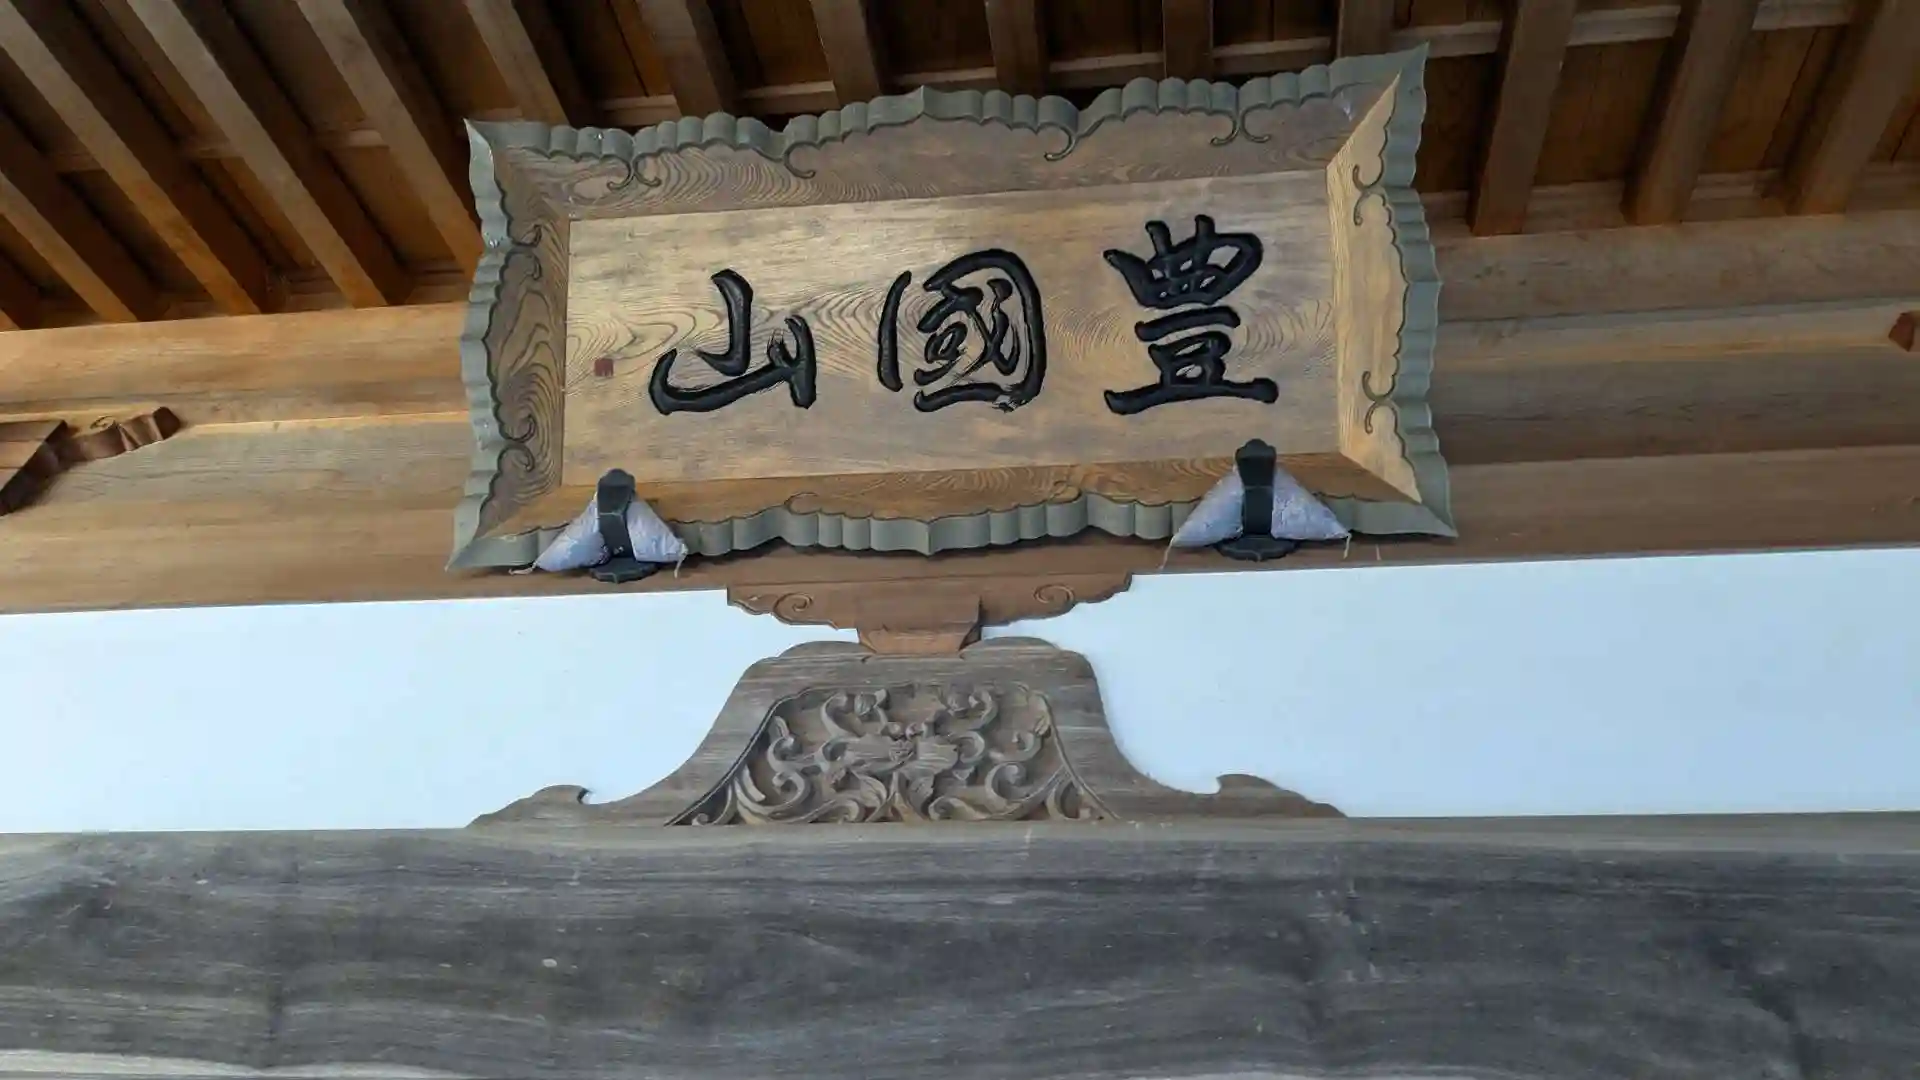 豊國山